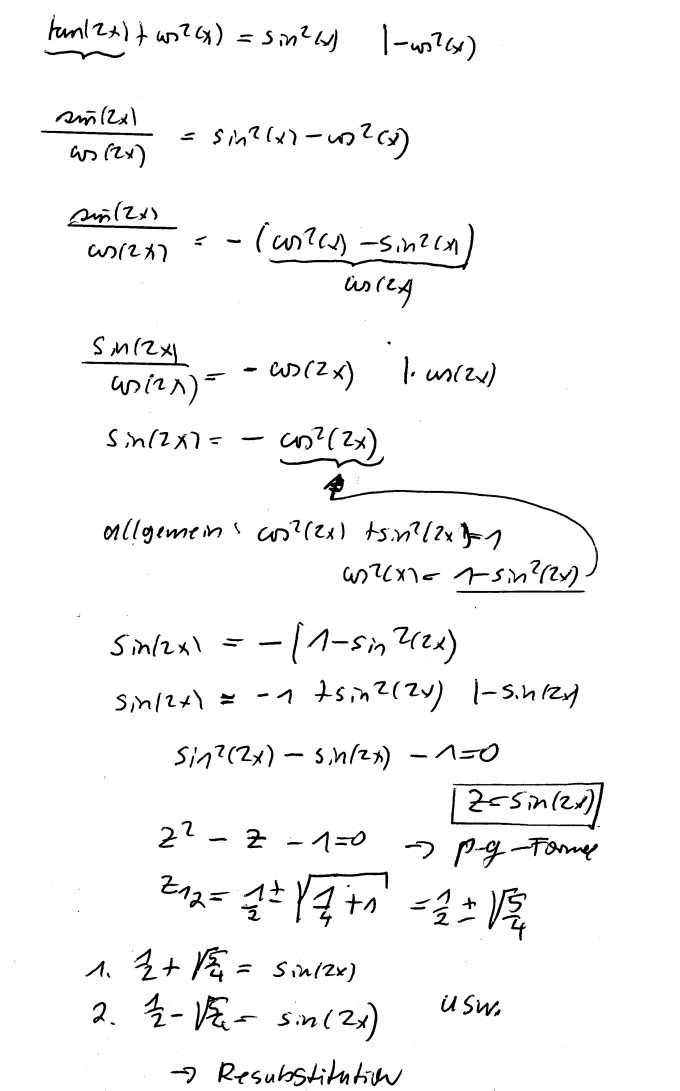 tan(2x) + cos²(x) = sin²(x) |-cos²(x)
sin(2x)/cos(2x) = sin²(x) - cos²(x)
sin(2x)/cos(2x) = - (cos²(x) - sin²(x))
cos(2x)
sin(2x)/cos(2x) = - cos(2x) |· cos(2x)
sin(2x) = - cos²(2x)
allgemein: cos²(2x) + sin²(2x) = 1
cos²(x) = 1 - sin²(2x)
sin(2x) = - (1 - sin²(2x)
sin(2x) = -1 + sin²(2x) |- sin(2x)
sin²(2x) - sin(2x) - 1 = 0
z = sin(2x)
z² - z - 1 = 0 → p-q-Formel
z₁₂ = 1/2 ± √(1/4 + 1) = 1/2 ± √(5/4)
1. 1/2 + √(5/4) = sin(2x)
2. 1/2 - √(5/4) = sin(2x) usw.
→ Resubstitution